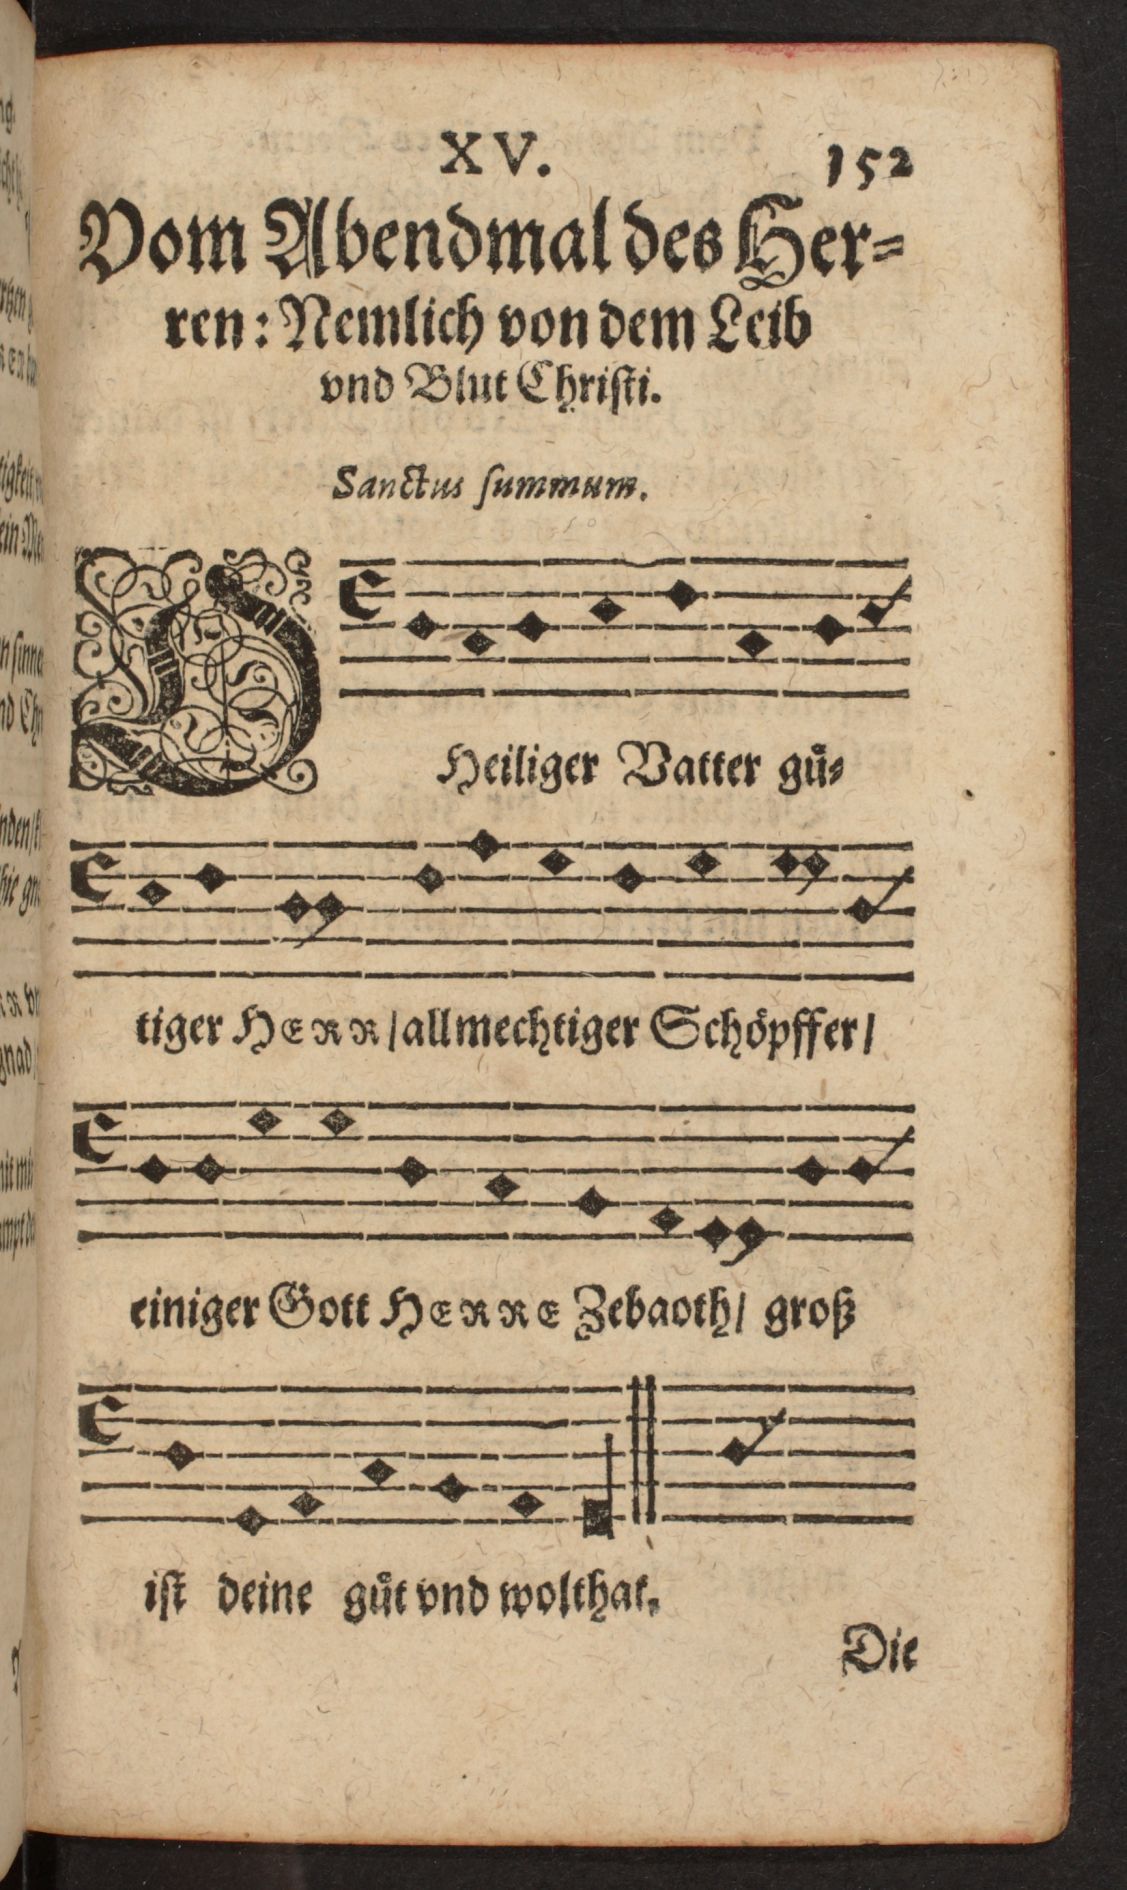 XV. 152
Vom Abendmal des Her=
ren: Nemlich von dem Leib
vnd Blut Chriſti.
Sanctus ſummum.
O Heiliger Vatter guͤ⸗
tiger HERR/allmechtiger Schöpffer/
einiger Gott HERRE Zebaoth/ groß
iſt deine guͤt vnd wolthat.
Die